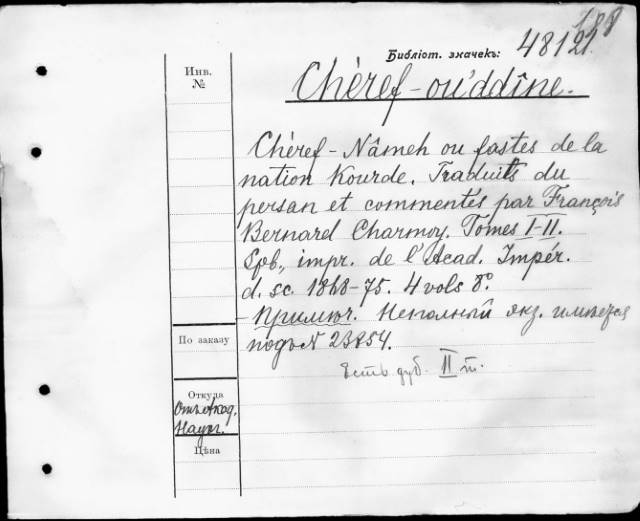 188
Библіот. значекъ: 48121.
Инв.
№
Chèref-ou'ddîne.
Chèref-Nâmeh ou fastes de la
nation Kourde. Traduits du
persan et commentés par François
Bernard Charmoy. Tomes I-II.
Spb., impr. de l'Acad. Impér.
d. sc. 1868-75. 4 vols 8º.
Примѣч. Неполный экз. имѣется
По заказу
подъ N 23854.
Есть дуб. II т.
Откуда
Отъ Акад.
Наукъ.
Цѣна